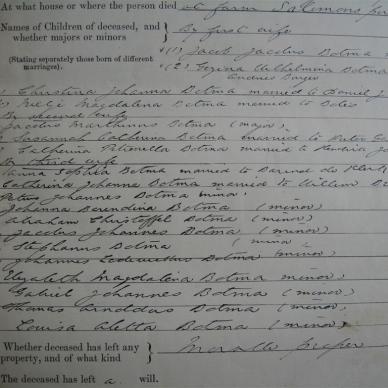 At what house or where the person died at farm
Names of Children of deceased, and whether majors or minors
By first wife
(Stating separately those born of different marriages).
(1) Jacob Jacobus Botma
(2) Wilhelmina Botma
Christina Johanna Botma married to Daniel J
Magdalena Botma married to
By second wife
Jacobus Marthinus Botma (major)
Susannah Catherina Botma married to Pieter
Catherina Petronella Botma married to Hendrik
By third wife
Anna Sophia Botma married to Barend de Klerk
Catherina Johanna Botma married to Willem
Petrus Johannes Botma minor
Johanna Berendina Botma (minor)
Abraham Christoffel Botma (minor)
Jacobus Johannes Botma (minor)
Stephanus Botma (minor)
Johannes Botma (minor)
Elizabeth Magdalena Botma minor)
Gabriel Johannes Botma (minor)
Thomas Arnoldus Botma (minor)
Louisa Aletta Botma (minor)
Whether deceased has left any property, and of what kind
Movable
The deceased has left a will.